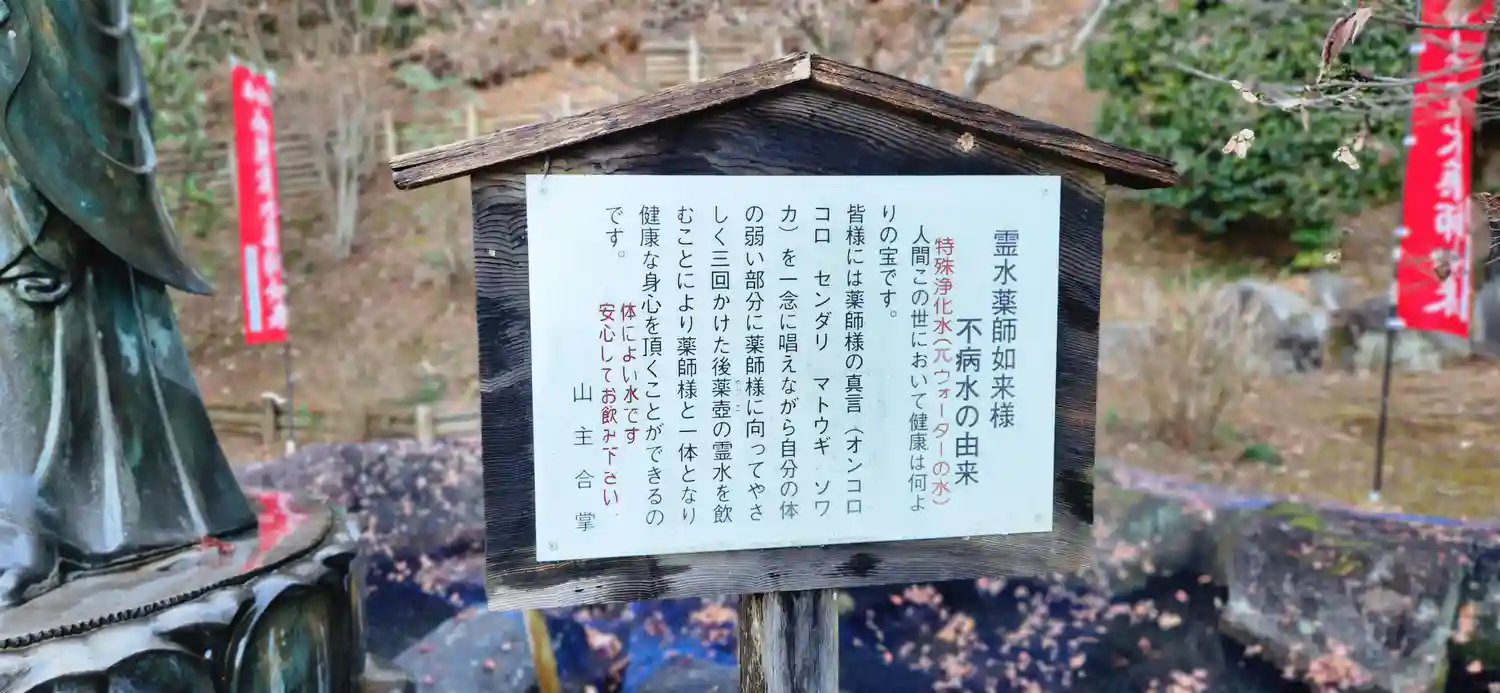 霊水薬師如来様
不病水の由来
特殊浄化水(π ウォーターの水)
人間この世において健康は何よ
りの宝です。
皆様には薬師様の真言(オンコロ
コロ センダリ マトウギ ソワ
カ)を一念に唱えながら自分の体
の弱い部分に薬師様に向ってやさ
しく三回かけた後薬壺の霊水を飲
むことにより薬師様と一体となり
健康な身心を頂くことができるの
です。
体によい水です
安心してお飲み下さい
山主合掌